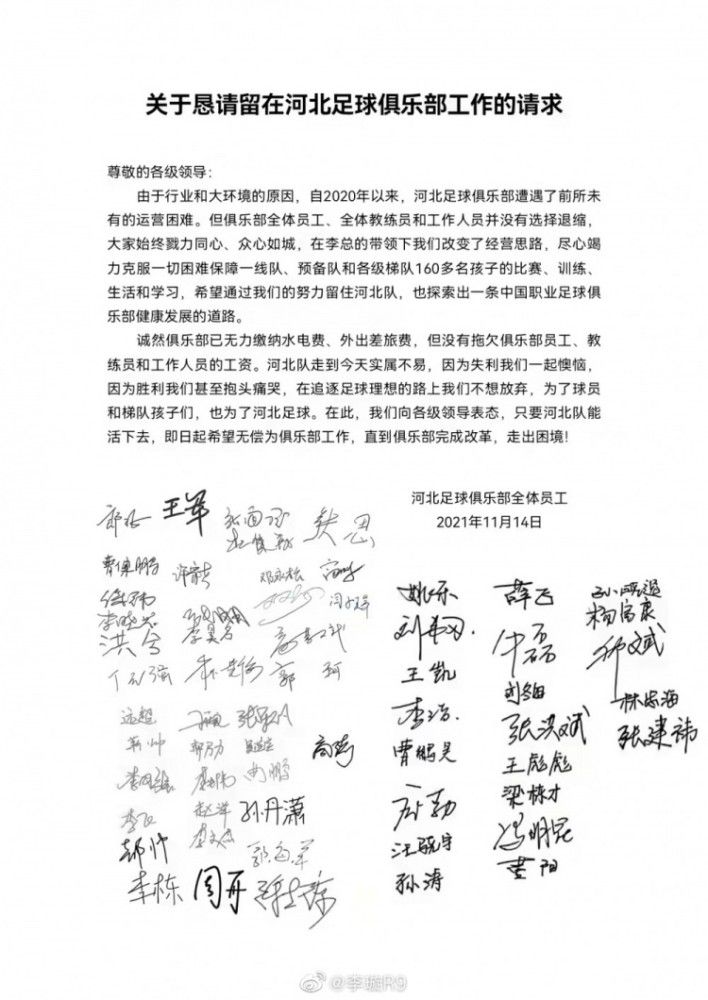 关于恳请留在河北足球俱乐部工作的请求
尊敬的各级领导：
由于行业和大环境的原因，自2020年以来，河北足球俱乐部遭遇了前所未
有的运营困难。但俱乐部全体员工、全体教练员和工作人员并没有选择退缩，
大家始终戮力同心、众心如城，在李总的带领下我们改变了经营思路，尽心竭
力克服一切困难保障一线队、预备队和各级梯队160多名孩子的比赛、训练、
生活和学习，希望通过我们的努力留住河北队，也探索出一条中国职业足球俱
乐部健康发展的道路。
诚然俱乐部已无力缴纳水电费、外出差旅费，但没有拖欠俱乐部员工、教
练员和工作人员的工资。河北队走到今天实属不易，因为失利我们一起懊恼，
因为胜利我们甚至抱头痛哭，在追逐足球理想的路上我们不想放弃，为了球员
和梯队孩子们，也为了河北足球。在此，我们向各级领导表态，只要河北队能
活下去，即日起希望无偿为俱乐部工作，直到俱乐部完成改革，走出困境！
河北足球俱乐部全体员工
2021年11月14日
王军
曹保鹏
姚乐
薛飞
杨富康
洪兮
李昊
王凯
牛磊
郭珂
李浩
林志海
远超
曹鹏昊
张洪斌
张建祎
高莹
王彪彪
孙丹潇
梁栋才
郝帅
汪骁宇
冯明昆
李栋
周开
孙涛
董阳
@李璇R9